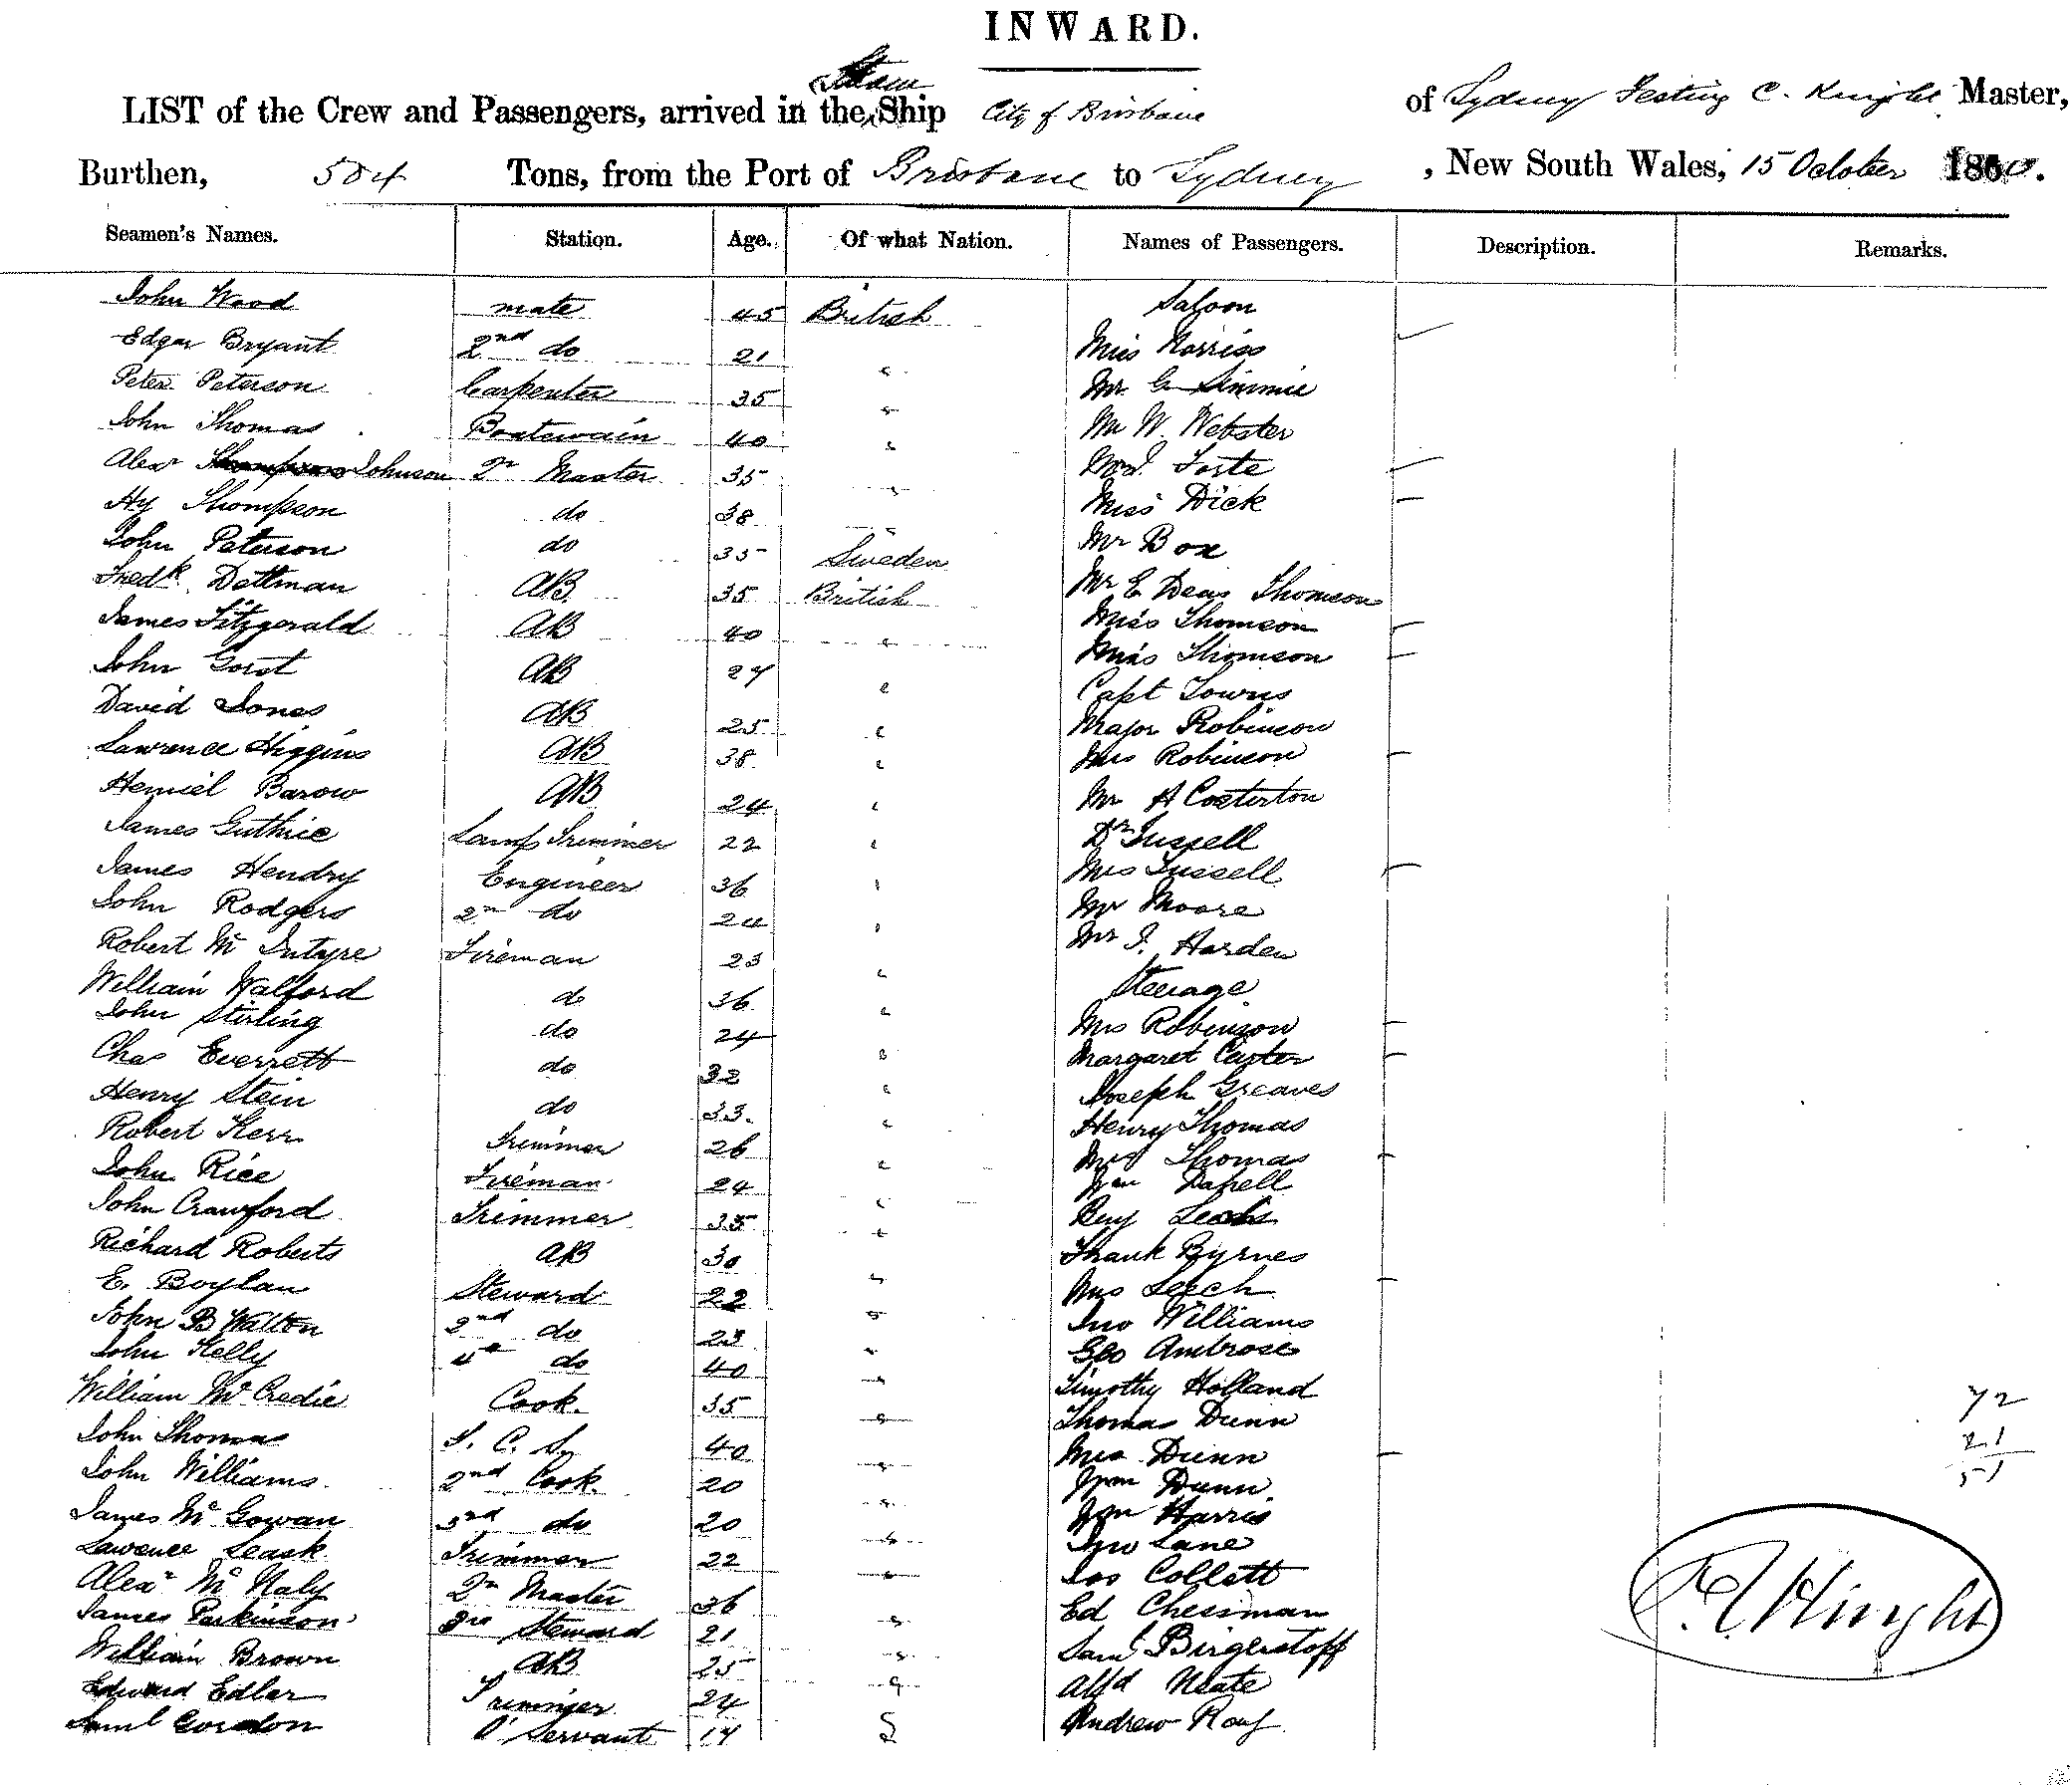 INWARD.
Steam
LIST of the Crew and Passengers, arrived in the Ship City of Brisbane of Sydney C. Knight Master,
Burthen, 504 Tons, from the Port of Brisbane to Sydney, New South Wales, 15 October 186
Seamen's Names. Station. Age. Of what Nation. Names of Passengers. Description. Remarks.
John Wood mate 45 British Saloon
Edgar Bryant 2nd do 21 " Miss Norriss
Peter Peterson Carpenter 35 " Mr G Simmie
John Thomas Boatswain 40 " Mr W. Webster
Alexr Johnson Qr Master 35 " Foste
Hy Thompson do 38 " Miss Dick
John Peterson do 35 Sweden Mr Box
Fredk. Dettman AB 35 British Mr E Deas Thomson
James Fitzgerald AB 40 " Miss Thomson
John Gorst AB 27 " Miss Thomson
David Jones AB 25 " Capt Towns
Lawrence Higgins AB 38 " Major Robinson
Mrs Robinson
Barow AB 24 " Mr A Costerton
James Guthrie Lamp Trimmer 22 " Dr
James Hendry Engineer 36 " Mrs
John Rodgers 2nd do 24 " Mr Moore
Robert Mc Intyre Fireman 23 " Mr J. Harden
William Walford do 36 " Steerage
John Stirling do 24 " Mrs Robinson
Chas Everrett do 32 " Margaret Carter
Henry Stein do 33 " Joseph Greaves
Robert Kerr Trimmer 26 " Henry Thomas
John Rice Fireman 24 " Mrs Thomas
Wm Dapell
John Crawford Trimmer 35 " Benj
Richard Roberts AB 30 " Frank Byrnes
E. Boylan Steward 22 " Mrs Leech
John B Walton 2nd do 23 " Jno Williams
John Kelly 4th do 40 " Geo Ambrose
William Mc Credie Cook. 35 " Timothy Holland
Thomas Dunn
John Thomas S. C. S. 40 " Mrs Dunn
John Williams 2nd Cook. 20 " Wm Dunn
James Mc Gowan 3rd do 20 " Wm Harris
Lawence Leask Trimmer 22 " Jno Lane
Alexr Mc Naly Qr Master 36 " Jos Collett
James Parkinson 3rd Steward 21 " Ed Chessman
William Brown AB 25 " Saml Birgerstoff
Edward Edler Trimmer 24 " Alfd Neate
Saml Gordon Servant 17 " Andrew
72
21
51